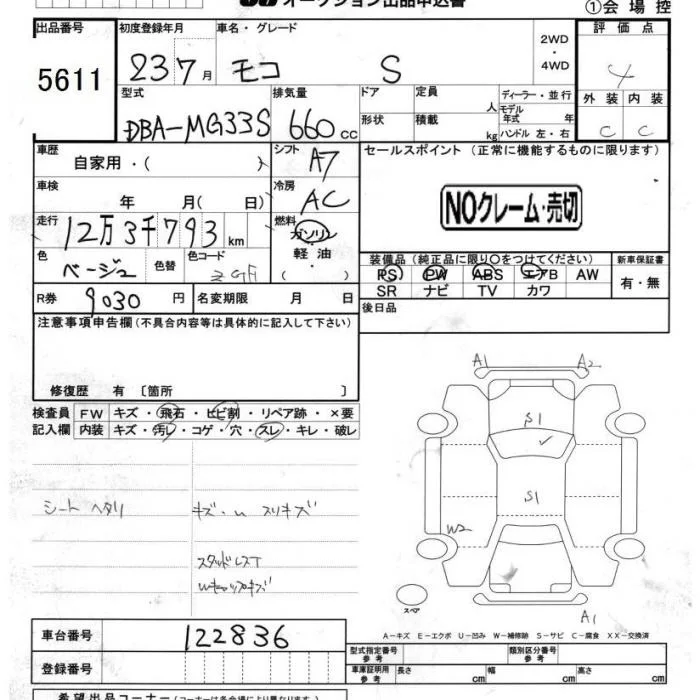 オークション出品申込書
①会場控
出品番号 初度登録年月 車名・グレード 2WD・4WD 評価点
5611 23 7月 モコ S 4
型式 排気量 ドア 定員 人 ディーラー・並行 外装 内装
DBA-MG33S 660cc 形状 積載 kg モデル年式 年 ハンドル 左・右 C C
車歴 自家用・( ) シフト A7 セールスポイント (正常に機能するものに限ります)
車検 年 月( 日) 冷房 AC NOクレーム・売切
走行 12万3千793km 燃料 ガソリン・軽油・( )
色 ベージュ 色替 色コード 装備品(純正品に限り○をつけてください) 新車保証書
PS PW ABS エアB AW 有・無
SR ナビ TV カワ
R券 9030円 名変期限 月 日 後日品
注意事項申告欄(不具合内容等は具体的に記入して下さい)
修復歴 有 〔箇所 〕
検査員 FW キズ・飛石・ヒビ割・リペア跡・×要
記入欄 内装 キズ・汚レ・コゲ・穴・スレ・キレ・破レ
シートヘタリ キズ・U スリキズ
スタッドレスT
Wキャップキズ
A1 A2
S1
S1
W2
スペア
A1
A-キズ E-エクボ U-凹み W-補修跡 S-サビ C-腐食 XX-交換済
車台番号 122836 型式指定番号 参考 類別区分番号 参考
登録番号 車庫証明用 参考 長さ cm 幅 cm 高さ cm
希望出品コーナー(コーナーは各会場により異なります)